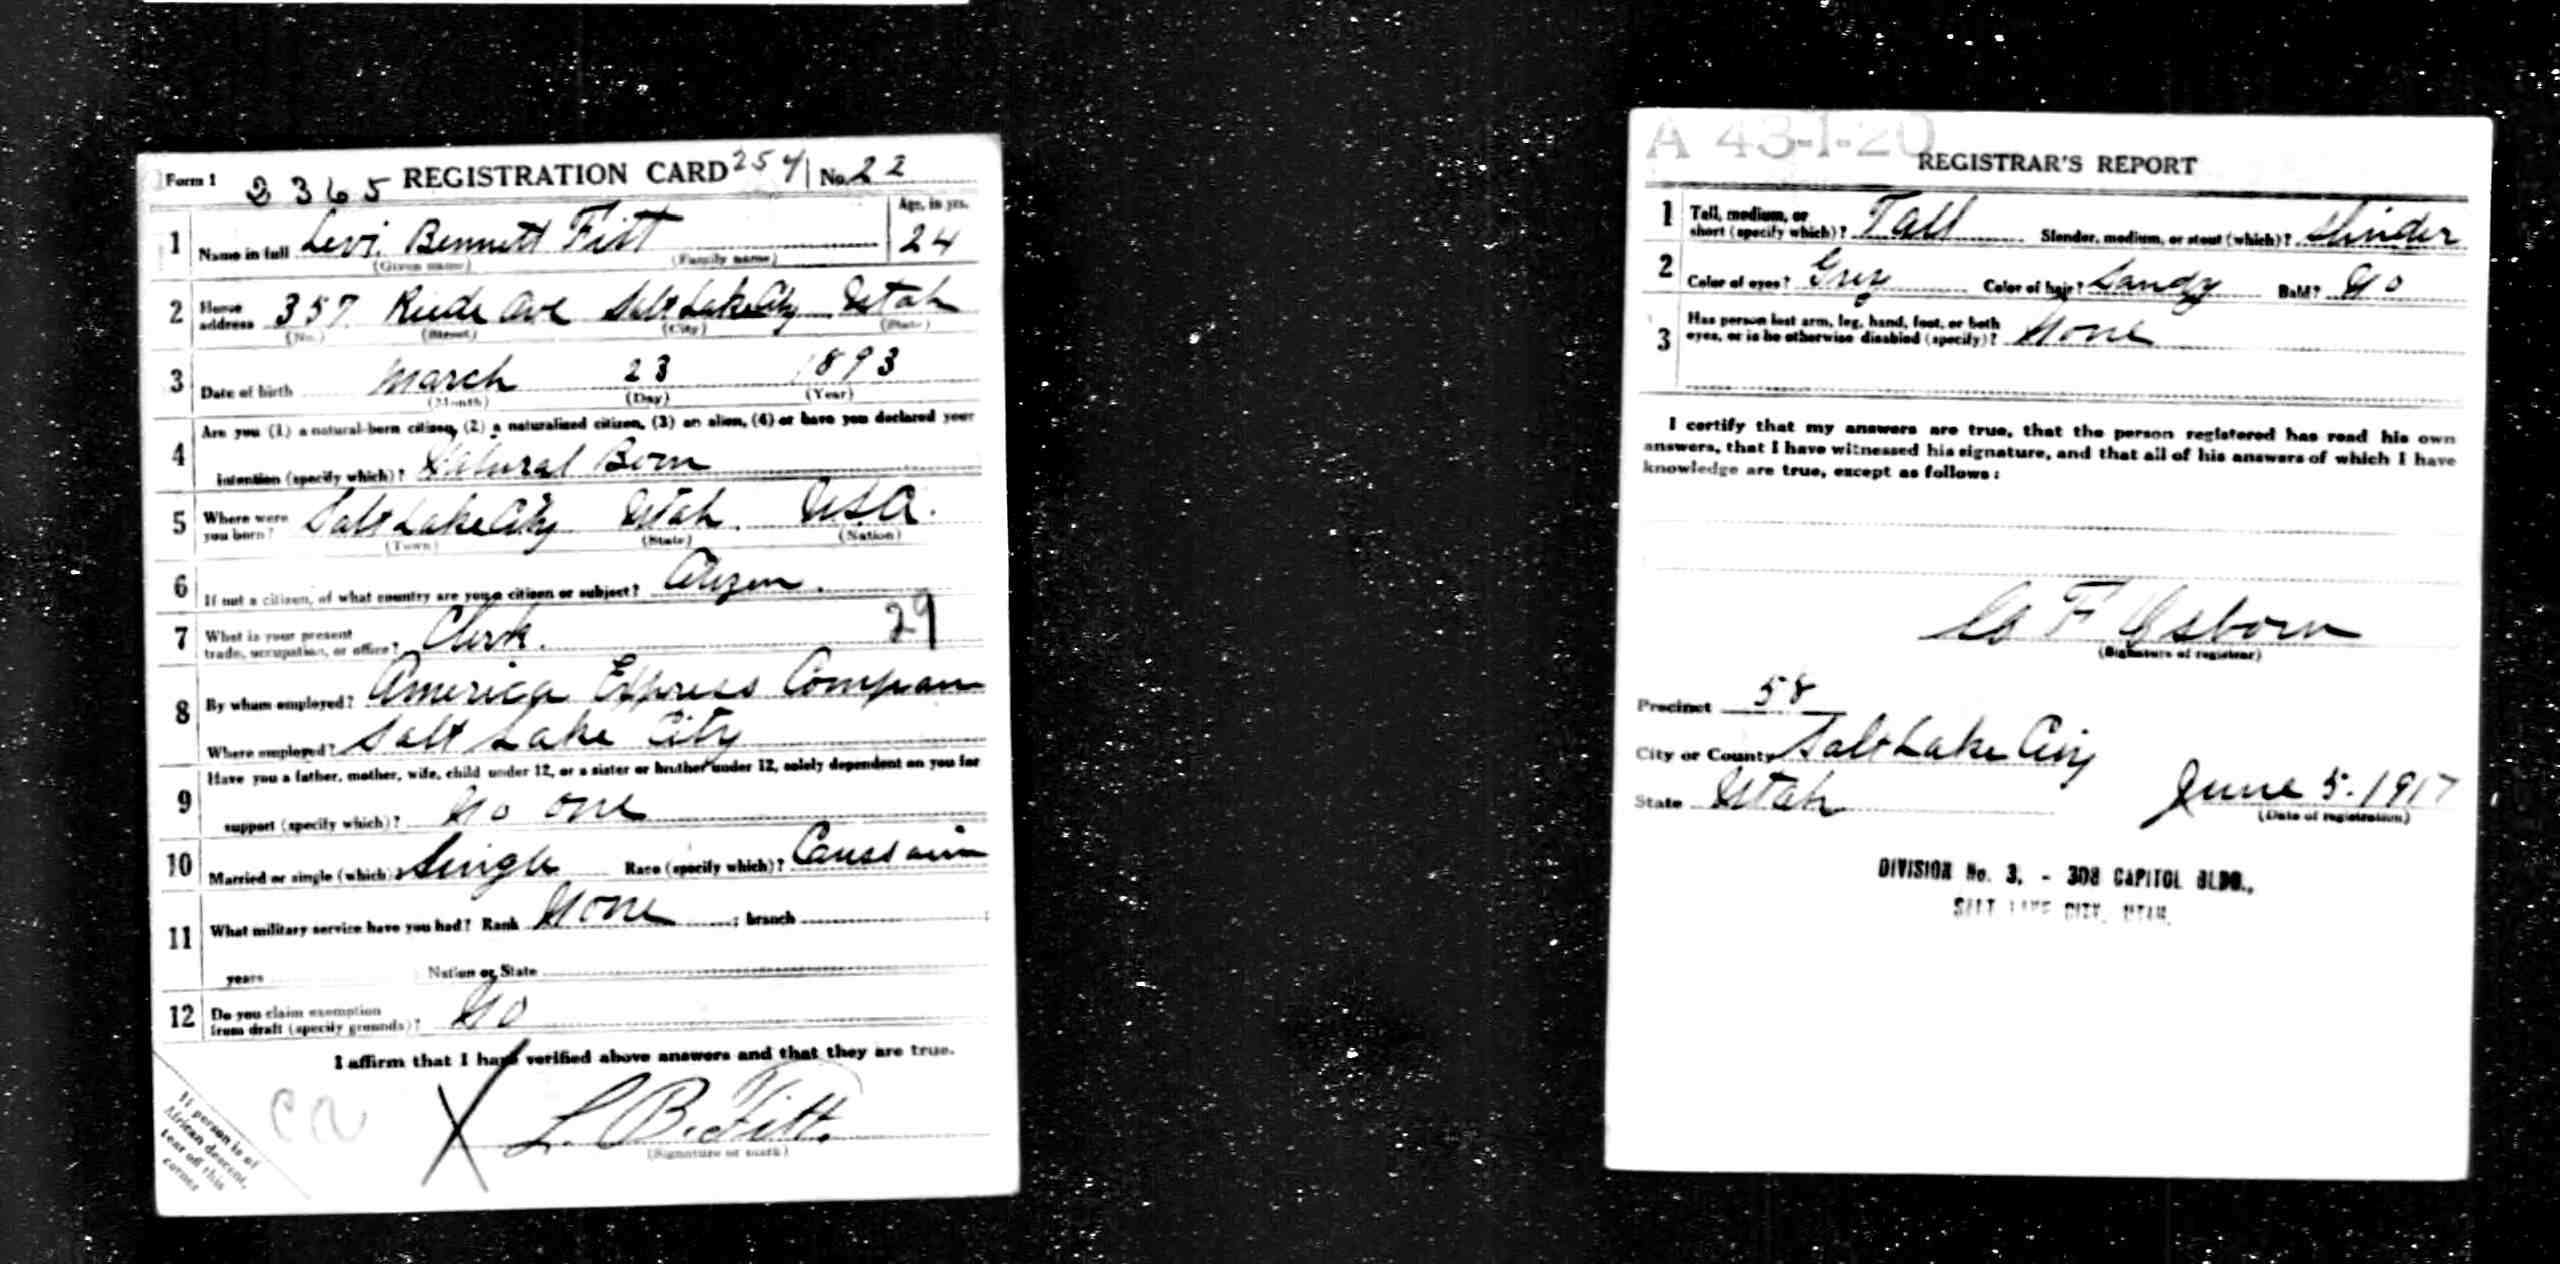 Form 1 2365 REGISTRATION CARD 254 No. 22
1 Name in full Levi Bennett Fitt Age, in yrs. 24
(Given name) (Family name)
2 Home address 357 Reede Ave Salt Lake City Utah
(No.) (Street) (City) (State)
3 Date of birth March 23 1893
(Month) (Day) (Year)
4 Are you (1) a natural-born citizen, (2) a naturalized citizen, (3) an alien, (4) or have you declared your
intention (specify which)? Natural Born
5 Where were you born? Salt Lake City Utah. U.S.A.
(Town) (State) (Nation)
6 If not a citizen, of what country are you a citizen or subject? Citizen.
7 What is your present trade, occupation, or office? Clerk. 29
8 By whom employed? America Express Compan
Where employed? Salt Lake City
9 Have you a father, mother, wife, child under 12, or a sister or brother under 12, solely dependent on you for
support (specify which)? No one
10 Married or single (which)? Single Race (specify which)?
11 What military service have you had? Rank None ; branch
years Nation or State
12 Do you claim exemption from draft (specify grounds)? No
I affirm that I have verified above answers and that they are true.
X L. B. Fitt.
(Signature or mark)
If person is of
African descent,
tear off this
corner
A 43-1-20
REGISTRAR'S REPORT
1 Tall, medium, or short (specify which)? Tall Slender, medium, or stout (which)? Slinder
2 Color of eyes? Grey Color of hair? Sandy Bald? No
3 Has person lost arm, leg, hand, foot, or both
eyes, or is he otherwise disabled (specify)? None
I certify that my answers are true, that the person registered has read his own
answers, that I have witnessed his signature, and that all of his answers of which I have
knowledge are true, except as follows:
F Osborn
(Signature of registrar)
Precinct 58
City or County Salt Lake City
State Utah June 5. 1917
(Date of registration)
DIVISION No. 3. - 308 CAPITOL BLDG.,
SALT LAKE CITY, UTAH.